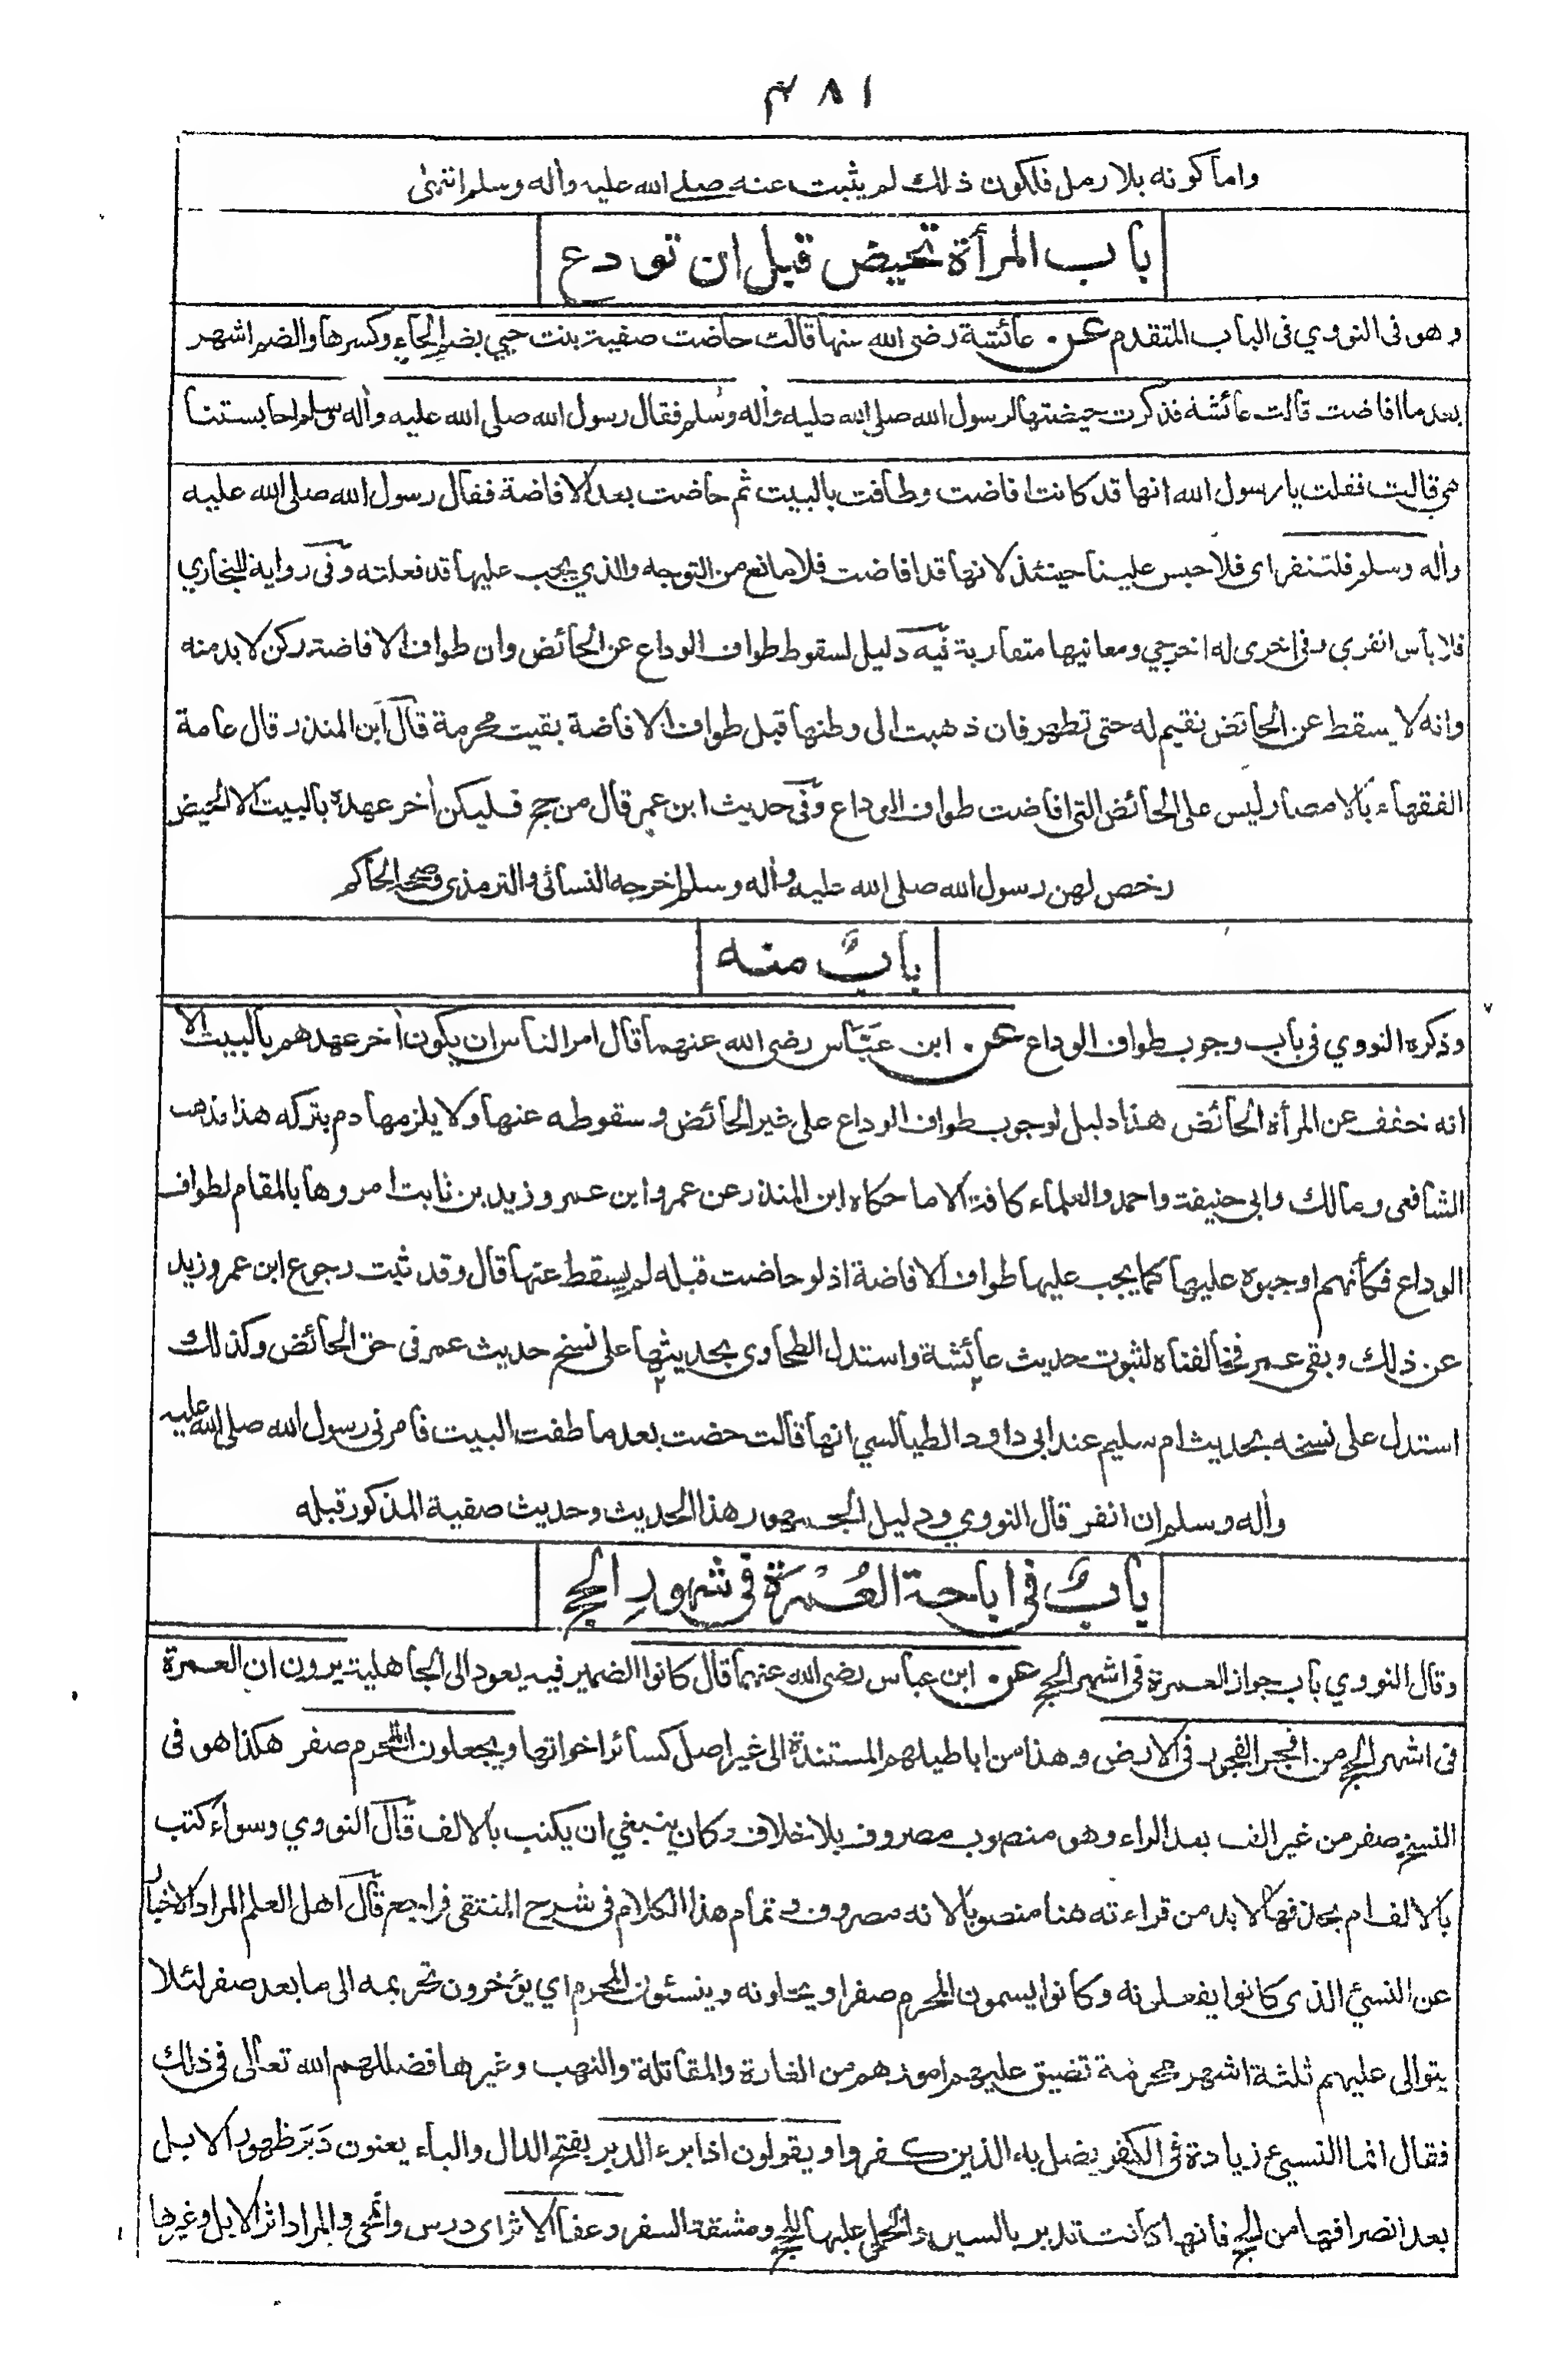 ٤٨١
واما كونه بلا رمل فلكون ذلك لم يثبت عنه صلى الله عليه وأله وسلم انتهى
باب المرأة تحيض قبل ان تودع
وهو فى النووي فى الباب المتقدم عن عائشة رضى الله عنها قالت حاضت صفية بنت حيي بضم الحاء وكسرها والضم اشهر
بعد ما افاضت قالت عائشة فذكرت حيضتها لرسول الله صلى الله عليه وأله وسلم فقال رسول الله صلى الله عليه وأله وسلم احابستنا
هي قالت فقلت يا رسول الله انها قد كانت افاضت وطافت بالبيت ثم حاضت بعد الافاضة فقال رسول الله صلى الله عليه
وأله وسلم فلتنفر اى فلا حبس علينا حينئذ لانها قد افاضت فلا مانع من التوجه والذي يجب عليها قد فعلته وفى رواية للبخاري
فلا بأس انفري وفى اخرى له اخرجي ومعانيها متقاربة فيه دليل لسقوط طواف الوداع عن الحائض وان طواف الافاضة ركن لا بد منه
وانه لا يسقط عن الحائض نقيم له حتى تطهر فان ذهبت الى وطنها قبل طواف الافاضة بقيت محرمة قال ابن المنذر قال عامة
الفقهاء بالامصار ليس على الحائض التى افاضت طواف الوداع وفى حديث ابن عمر قال من حج فليكن أخر عهده بالبيت الا الحيض
رخص لهن رسول الله صلى الله عليه وأله وسلم اخرجه النسائى والترمذى وصححه الحاكم
باب منه
وذكره النووي فى باب وجوب طواف الوداع عن ابن عباس رضى الله عنهما قال امر الناس ان يكون أخر عهدهم بالبيت الا
انه خفف عن المرأة الحائض هذا دليل لوجوب طواف الوداع على غير الحائض وسقوطه عنها ولا يلزمها دم بتركه هذا مذهب
الشافعى ومالك وابى حنيفة واحمد والعلماء كافة الا ما حكاه ابن المنذر عن عمر وابن عمر وزيد بن ثابت امروها بالمقام لطواف
الوداع فكأنهم اوجبوه عليها كما يجب عليها طواف الافاضة اذ لو حاضت قبله لم يسقط عنها قال وقد ثبت رجوع ابن عمر وزيد
عن ذلك وبقى عمر فخالفناه لثبوت حديث عائشة واستدل الطحاوى بحديثها على نسخ حديث عمر فى حق الحائض وكذلك
استدل على نسخه بحديث ام سليم عند ابى داود الطيالسي انها قالت حضت بعد ما طفت البيت فامرنى رسول الله صلى الله عليه
وأله وسلم ان انفر قال النووي ودليل الجمهور هذا الحديث وحديث صفية المذكور قبله
باب فى اباحة العمرة فى شهور الحج
وقال النووي باب جواز العمرة فى اشهر الحج عن ابن عباس رضى الله عنهما قال كانوا الضمير فيه يعود الى الجاهلية يرون ان العمرة
فى اشهر الحج من افجر الفجور فى الارض وهذا من اباطيلهم المستندة الى غير اصل كسائر اخواتها ويجعلون المحرم صفر هكذا هو فى
النسخ صفر من غير الف بعد الراء وهو منصوب مصروف بلا خلاف وكان ينبغي ان يكتب بالالف قال النووي وسواء كتب
بالالف ام بحذفها لا بد من قراءته هنا منصوبا لانه مصروف وتمام هذا الكلام فى شرح المنتقى فراجع قال اهل العلم المراد الاخبار
عن النسئ الذى كانوا يفعلونه وكانوا يسمون المحرم صفرا ويحلونه وينسئون المحرم اي يؤخرون تحريمه الى ما بعد صفر لئلا
يتوالى عليهم ثلثة اشهر محرمة تضيق عليهم امورهم من الغارة والمقاتلة والنهب وغيرها فضللهم الله تعالى فى ذلك
فقال انما النسيء زيادة فى الكفر يضل به الذين كفروا ويقولون اذا برء الدبر بفتح الدال والباء يعنون دبر ظهور الابل
بعد انصرافها من الحج فانها كانت تدبر بالسير والحمل عليها للحج ومشقة السفر وعفا الاثر اى درس وانمحى والمراد اثر الابل وغيرها